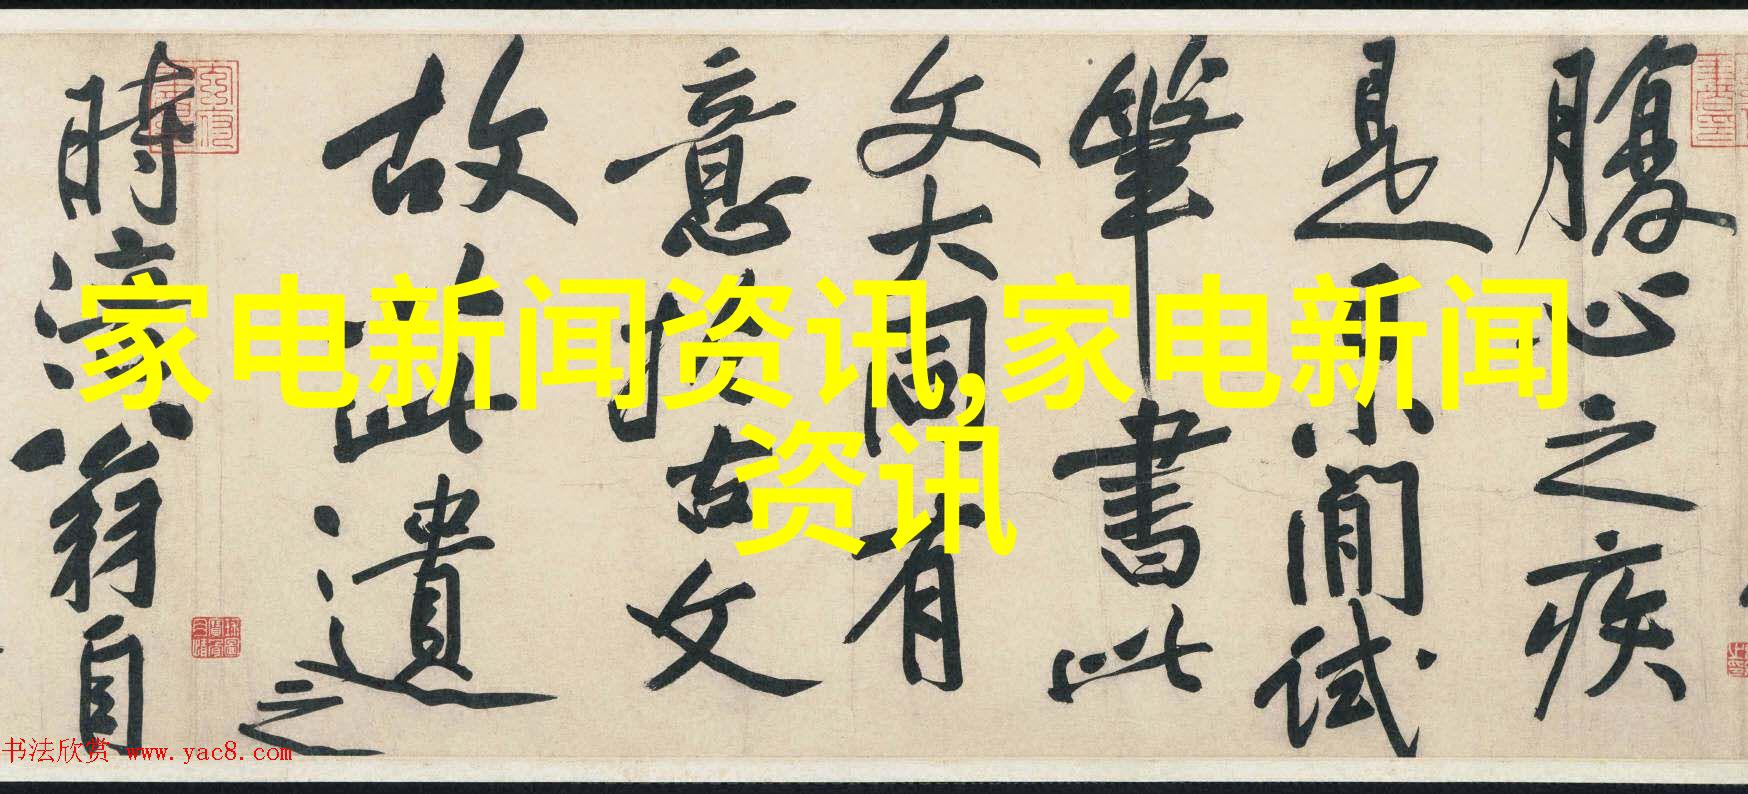 家电新闻资讯,家电新闻
资讯
腹心之疾
是 閒試
筆書此
文大同有
意於古文
故此遺之
時涪翁自
书法欣赏 www.yac8.com